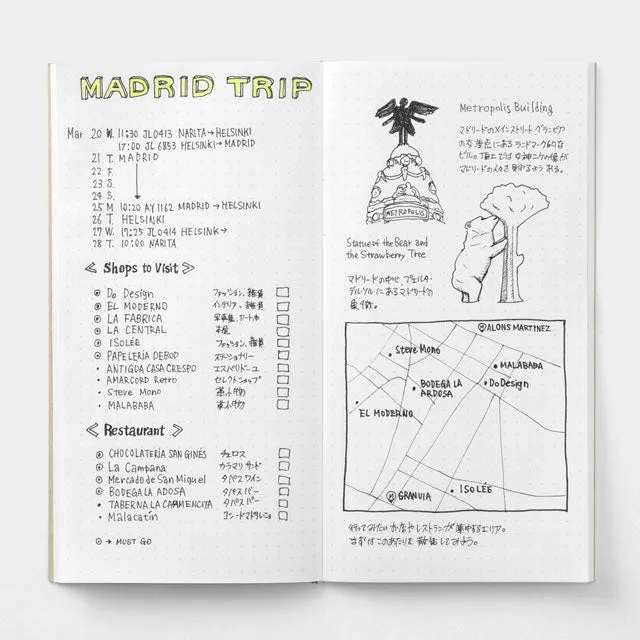 MADRID TRIP
Mar 20 W. 11:30 JL0413 NARITA→HELSINKI
17:00 JL6853 HELSINKI→MADRID
21 T. MADRID
22 F.
23 S.
24 S.
25 M. 10:20 AY1162 MADRID→HELSINKI
26 T. HELSINKI
27 W. 17:25 JL0414 HELSINK→
28 T. 10:00 NARITA
≪ Shops to Visit ≫
⦿ Do Design ファッション、雑貨
⦿ EL MODERNO インテリア・雑貨
⦿ LA FABRICA 写真集、アート本
⦿ LA CENTRAL 本屋
⦿ ISOLÉE ファッション、雑貨
⦿ PAPELERÍA DEBOD ステーショナリー
• ANTIGUA CASA CRESPO エスパドリーユ
• AMARCORD Retro セレクトショップ
• Steve Mono 革小物
• MALABABA 革小物
≪ Restaurant ≫
⦿ CHOCOLATERÍA SAN GINÉS チュロス
⦿ La Campana カラマリサンド
⦿ Mercado de San Miguel タパスワイン
⦿ BODEGA LA ADOSA タパスバー
• TABERNA LA CARMENCITA タパスバー
• Malacatín コシードマドリレーニョ
⦿ → MUST GO
Metropolis Building
マドリードのメインストリート グランビア
の交差点にあるランドマーク的な
ビル。頂上では女神ニケの像が
マドリードの人々を見守るよう ある。
METROPOLIS
Statue of the Bear and
the Strawberry Tree
マドリードの中心、プエルタ・
デル・ソルにあるマドリードの
象徴。
Ⓜ ALONS MARTINEZ
Steve Mono
MALABABA
BODEGA LA
ARDOSA
Do Design
EL MODERNO
Ⓜ GRANVIA
ISOLÉE
行ってみたいお店やレストランが集中するエリア。
まずはこのあたりを散策してみよう。